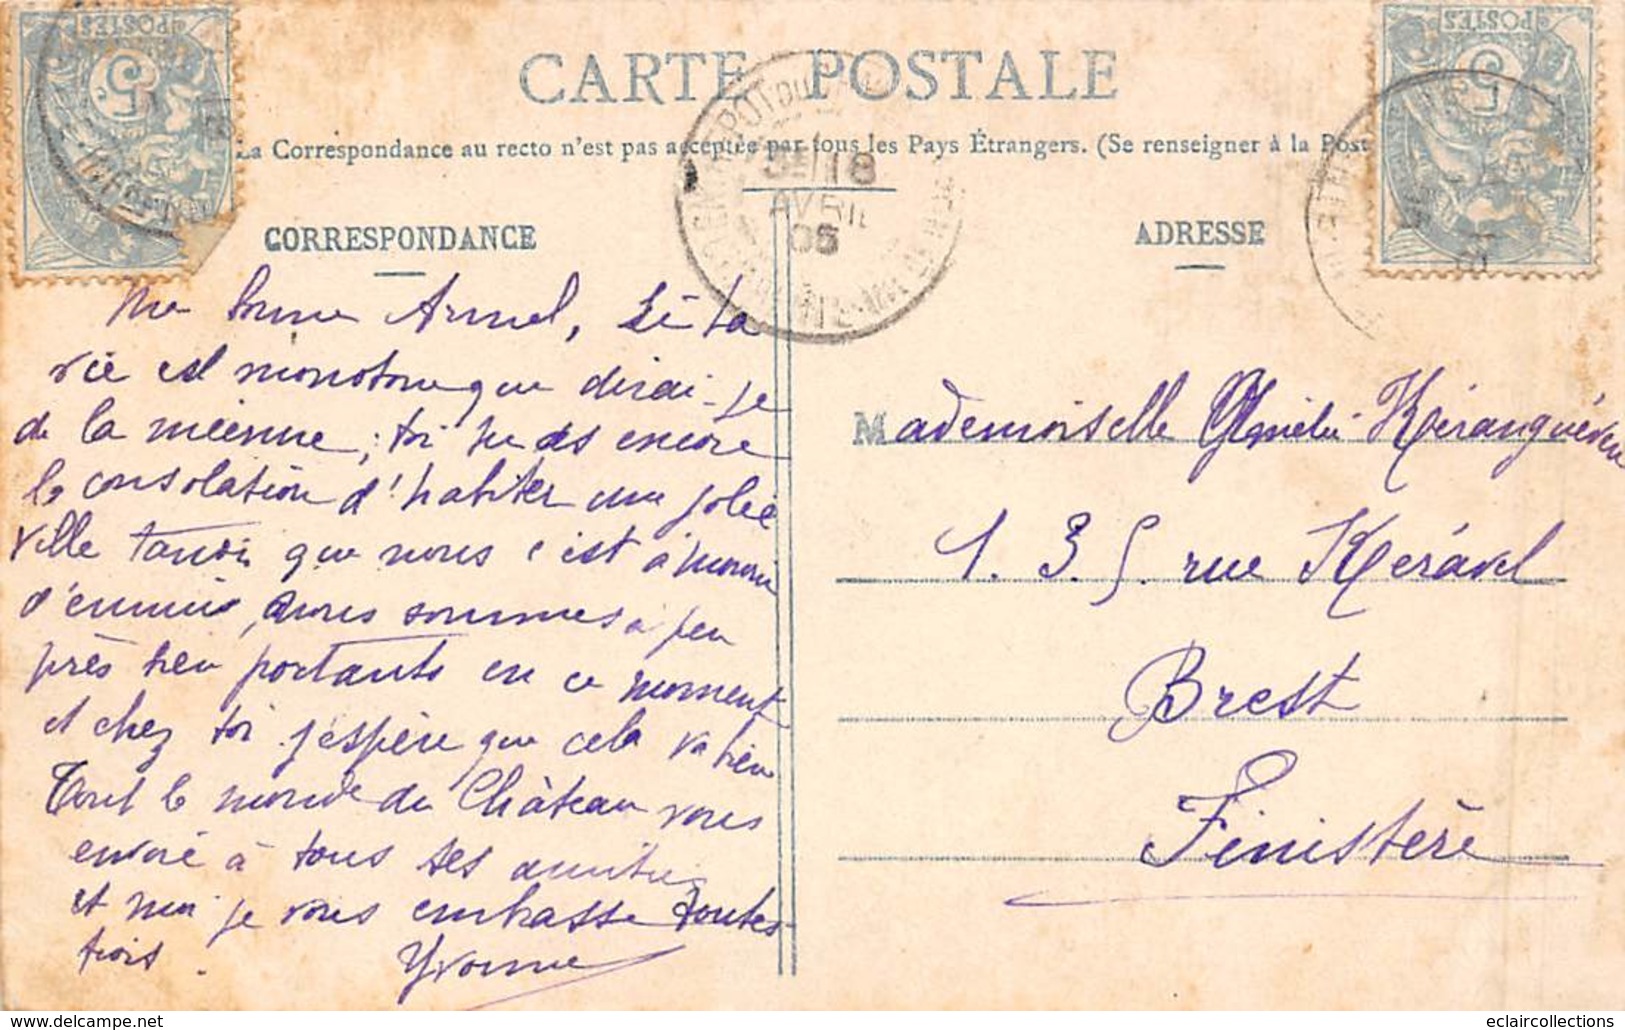 POSTES
5
POSTES
5
CARTE POSTALE
La Correspondance au recto n'est pas acceptée par tous les Pays Étrangers. (Se renseigner à la Post
18
AVRIL
CORRESPONDANCE
ADRESSE
Ma bonne Armel, si ta
vie est monotone que dirai-je
de la mienne, toi tu as encore
la consolation d'habiter une jolie
ville tandis que nous c'est à mourir
d'ennui, nous sommes à peu
près bien portants en ce moment
et chez toi j'espère que cela va bien
Tout le monde du Château vous
envoie à tous ses amitiés
et moi je vous embrasse toutes
trois. Yvonne
Mademoiselle Kéranguéven
135 rue Keravel
Brest
Finistère
eclaircollections
https://www.delcampe.net